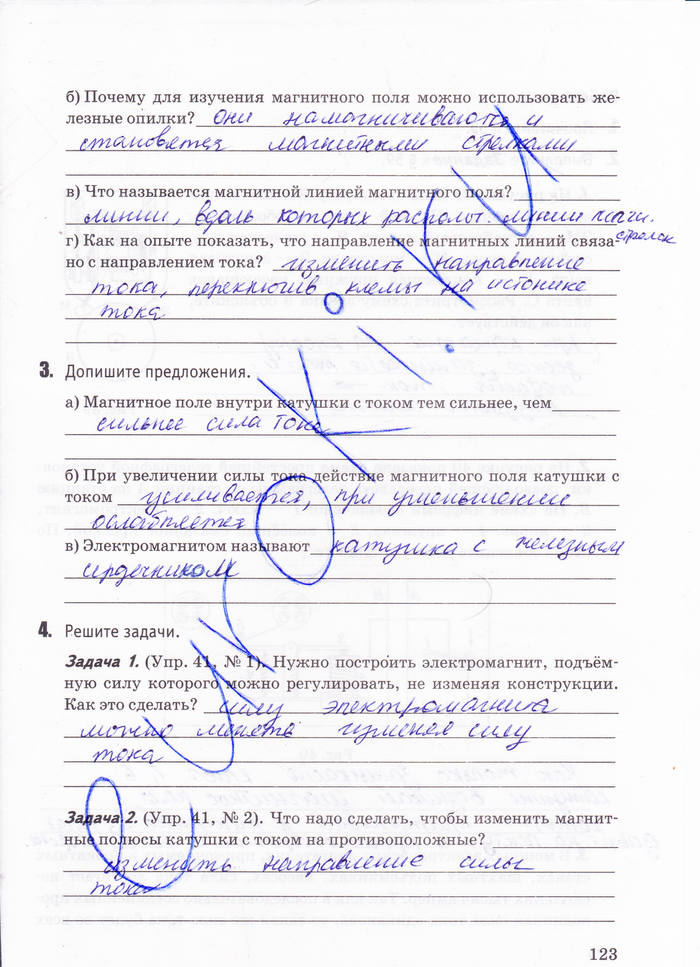 б) Почему для изучения магнитного поля можно использовать же-
лезные опилки? они намагничиваются и
становятся магнитными стрелками
в) Что называется магнитной линией магнитного поля?
линии, вдоль которых располог. линии
стрелок
г) Как на опыте показать, что направление магнитных линий связа-
но с направлением тока? изменить направление
тока, переключив клемы на истонике
тока
3. Допишите предложения.
а) Магнитное поле внутри катушки с током тем сильнее, чем
сильнее сила тока
б) При увеличении силы тока действие магнитного поля катушки с
током усиливается, при уменьшении
ослабляется
в) Электромагнитом называют катушка с железным
сердечником
4. Решите задачи.
Задача 1. (Упр. 41, № 1). Нужно построить электромагнит, подъём-
ную силу которого можно регулировать, не изменяя конструкции.
Как это сделать? силу электромагнита
можно менять изменяя силу
тока
Задача 2. (Упр. 41, № 2). Что надо сделать, чтобы изменить магнит-
ные полюсы катушки с током на противоположные?
изменить направление силы
тока
123